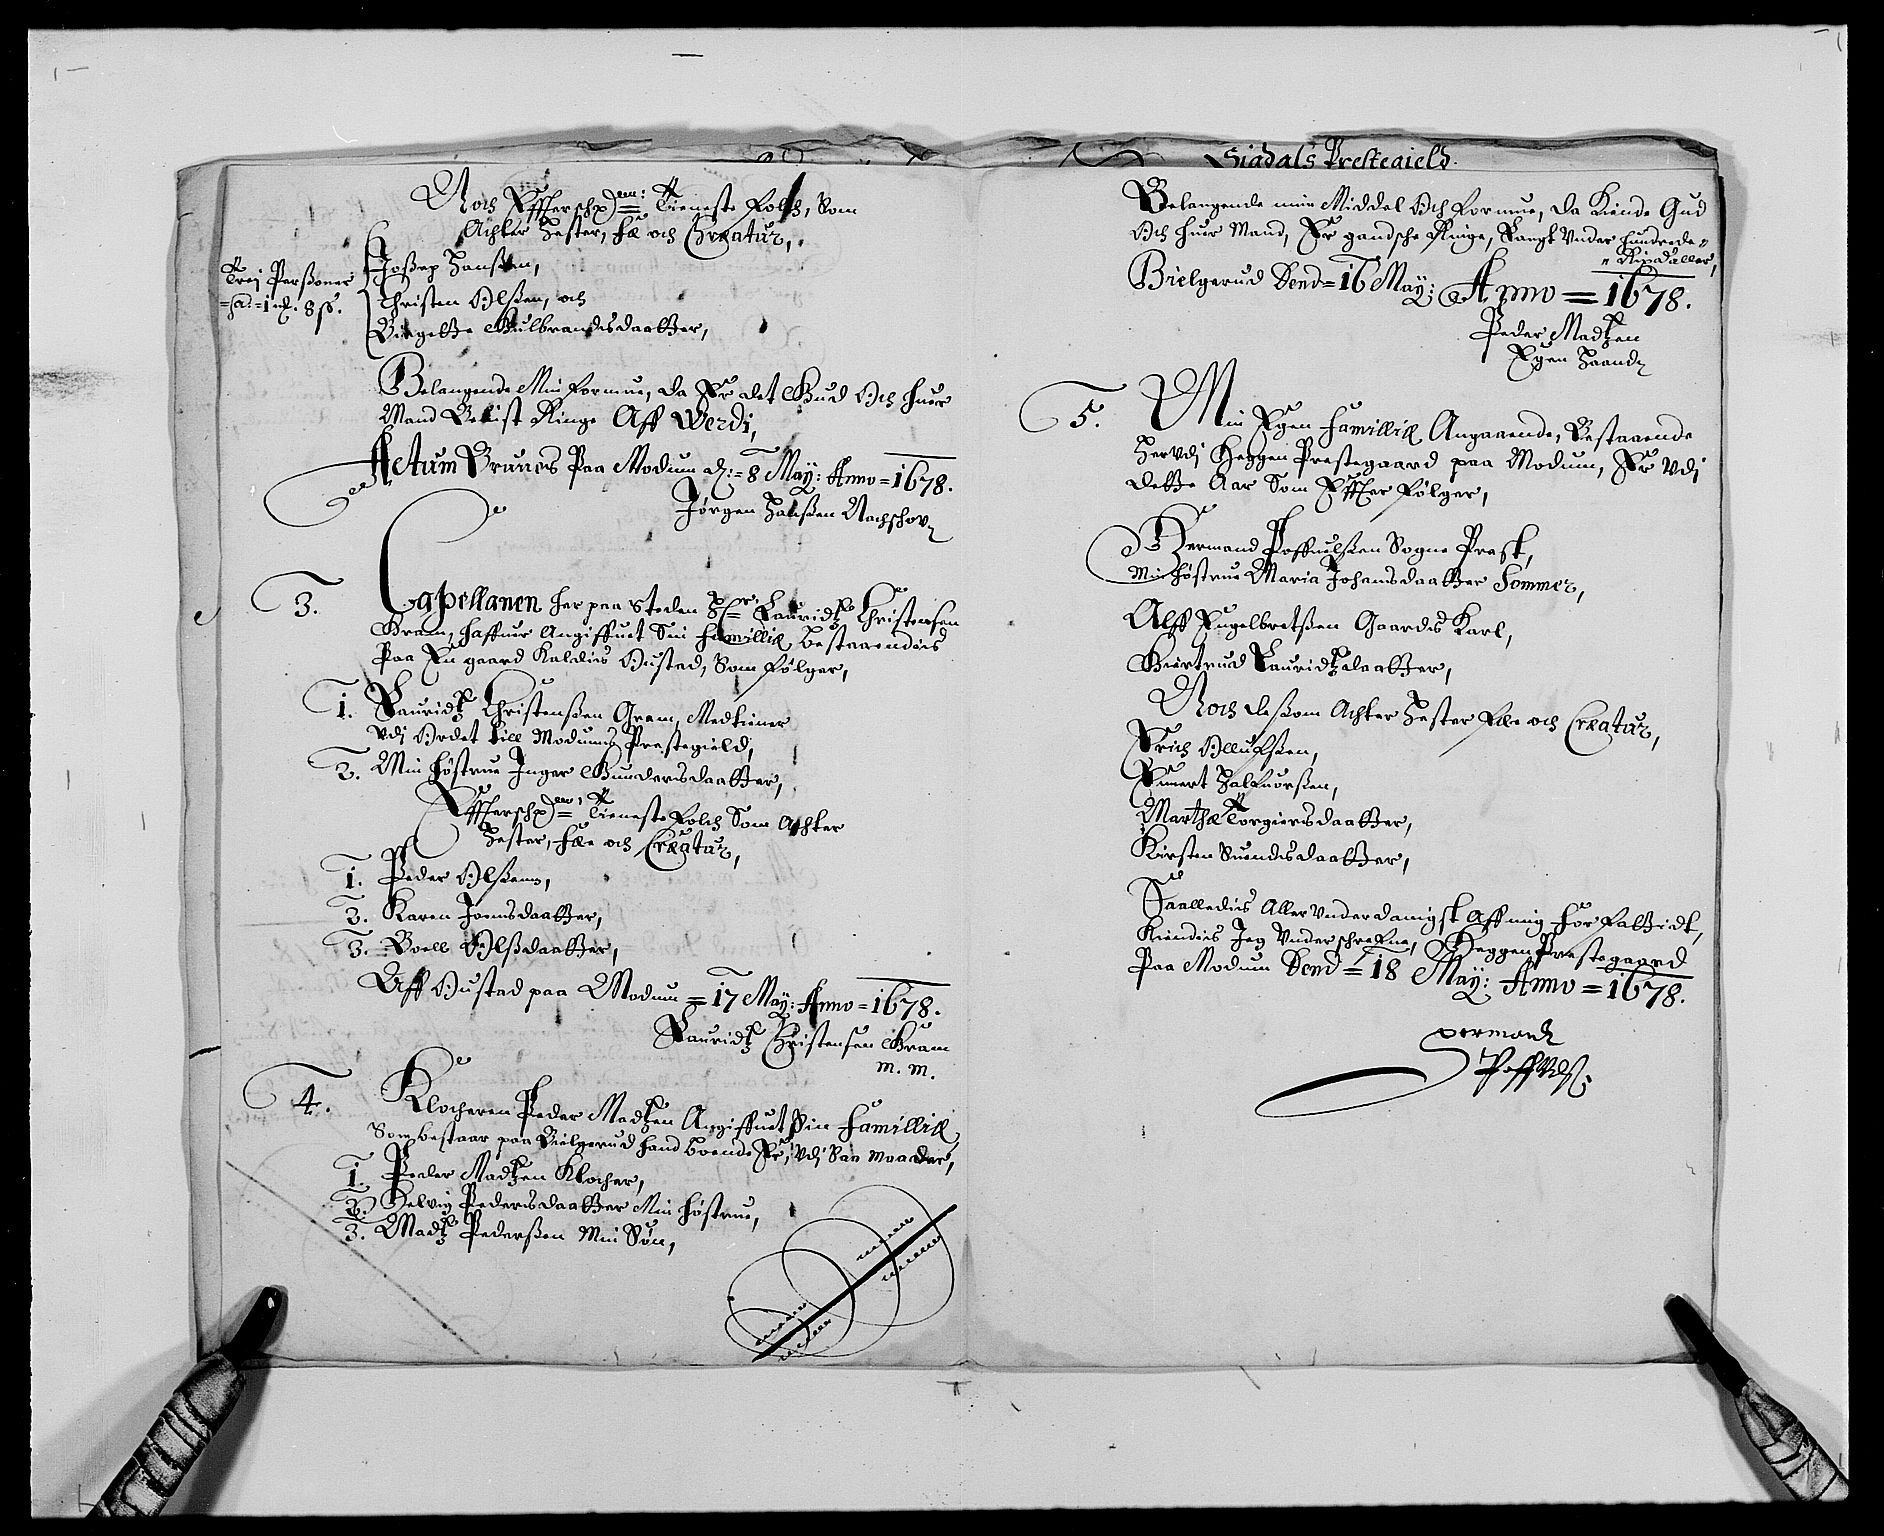 Noch Effterschr:ne Tieneste Folch, Som
Achter Hester, Fæ och Creatur,
Trej Perßoner
=er: 1 mk. 8 ß.
Joßep Hanßen,
Christen Olßen, och
Birgette Gulbrandsdaatter,
Belangende Min Formue, da Er det Gud Och huer
Mand Bekist Ringe Aff Werdi,
Actum Brunes Paa Modum d: 8 May: Anno = 1678.
Jørgen Hanßen Nachschov
3. Capellanen her paa Steden Hr Lauridtz Christensen
Gram, haffuer Angiffuet Sin Famillie bestaaendis
Paa En gaard Kaldis Bustad, Som Følger,
1. Lauridtz Christenßen Gram, Medtiener
Udj Ordet till Modums Prestegield,
2. Min Høstrue Inger Gundersdaatter,
Effterschr:ne Tieneste Folch Som Achter
Hester, Fæe och Creatur,
1. Peder Olßenn,
2. Karen Joensdaatter,
3. Boell Olßdaatter,
Aff Bustad paa Modum = 17 May: Anno = 1678.
Lauridtz Christensen Gram
m. m.
4. Klocheren Peder Madtzen Angiffuet Sin Famillie
Som bestaar paa Bielgerud hand boende Er, Udj Saa maader,
1. Peder Madtzen Klocher,
2. Helvig Pedersdaatter Min Høstrue,
3. Madtz Pederßen Min Søn,
Sigdals Prestegield.
Belangende min Middel Och Formue, da Kiende Gud
Och huer Mand, Er gandsche Ringe, Langt Under hundrede
Rixdaller,
Bielgerud Dend = 16 May: Anno = 1678.
Peder Madtzen
Egen Haand
5. Min Egen Famillie Angaaende, Bestaaende
Herudj Heggen Prestegaard paa Modum, Er Udj
Dette Aar Som Effter Følger,
Wermand Poffuelßen Sogne Prest,
Min Høstrue Maria Johansdaatter Sommer,
Alff Engelbretßen Gaards Karl,
Giertrud Lauridtzdaatter,
Noch deßom Achter Hester Fæe och Creatur,
Erich Olluffsen,
Euert Halfuorßen,
Marthe Torgiersdaatter,
Kirsten Suendsdaatter,
Saalledis Aller Underdanigst Aff mig Forfattidt,
Kiendis Jeg Underschreffne, Heggen Prestegaard
Paa Modum Dend = 18 May: Anno = 1678.
Wermand
Poffuels: